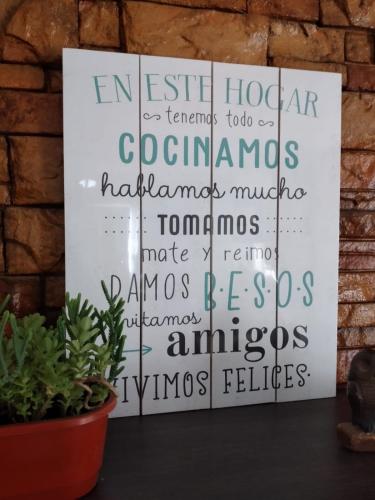 EN ESTE HOGAR
tenemos todo
COCINAMOS
hablamos mucho
TOMAMOS
mate y reimos
DAMOS B·E·S·O·S
nvitamos
amigos
VIVIMOS FELICES·